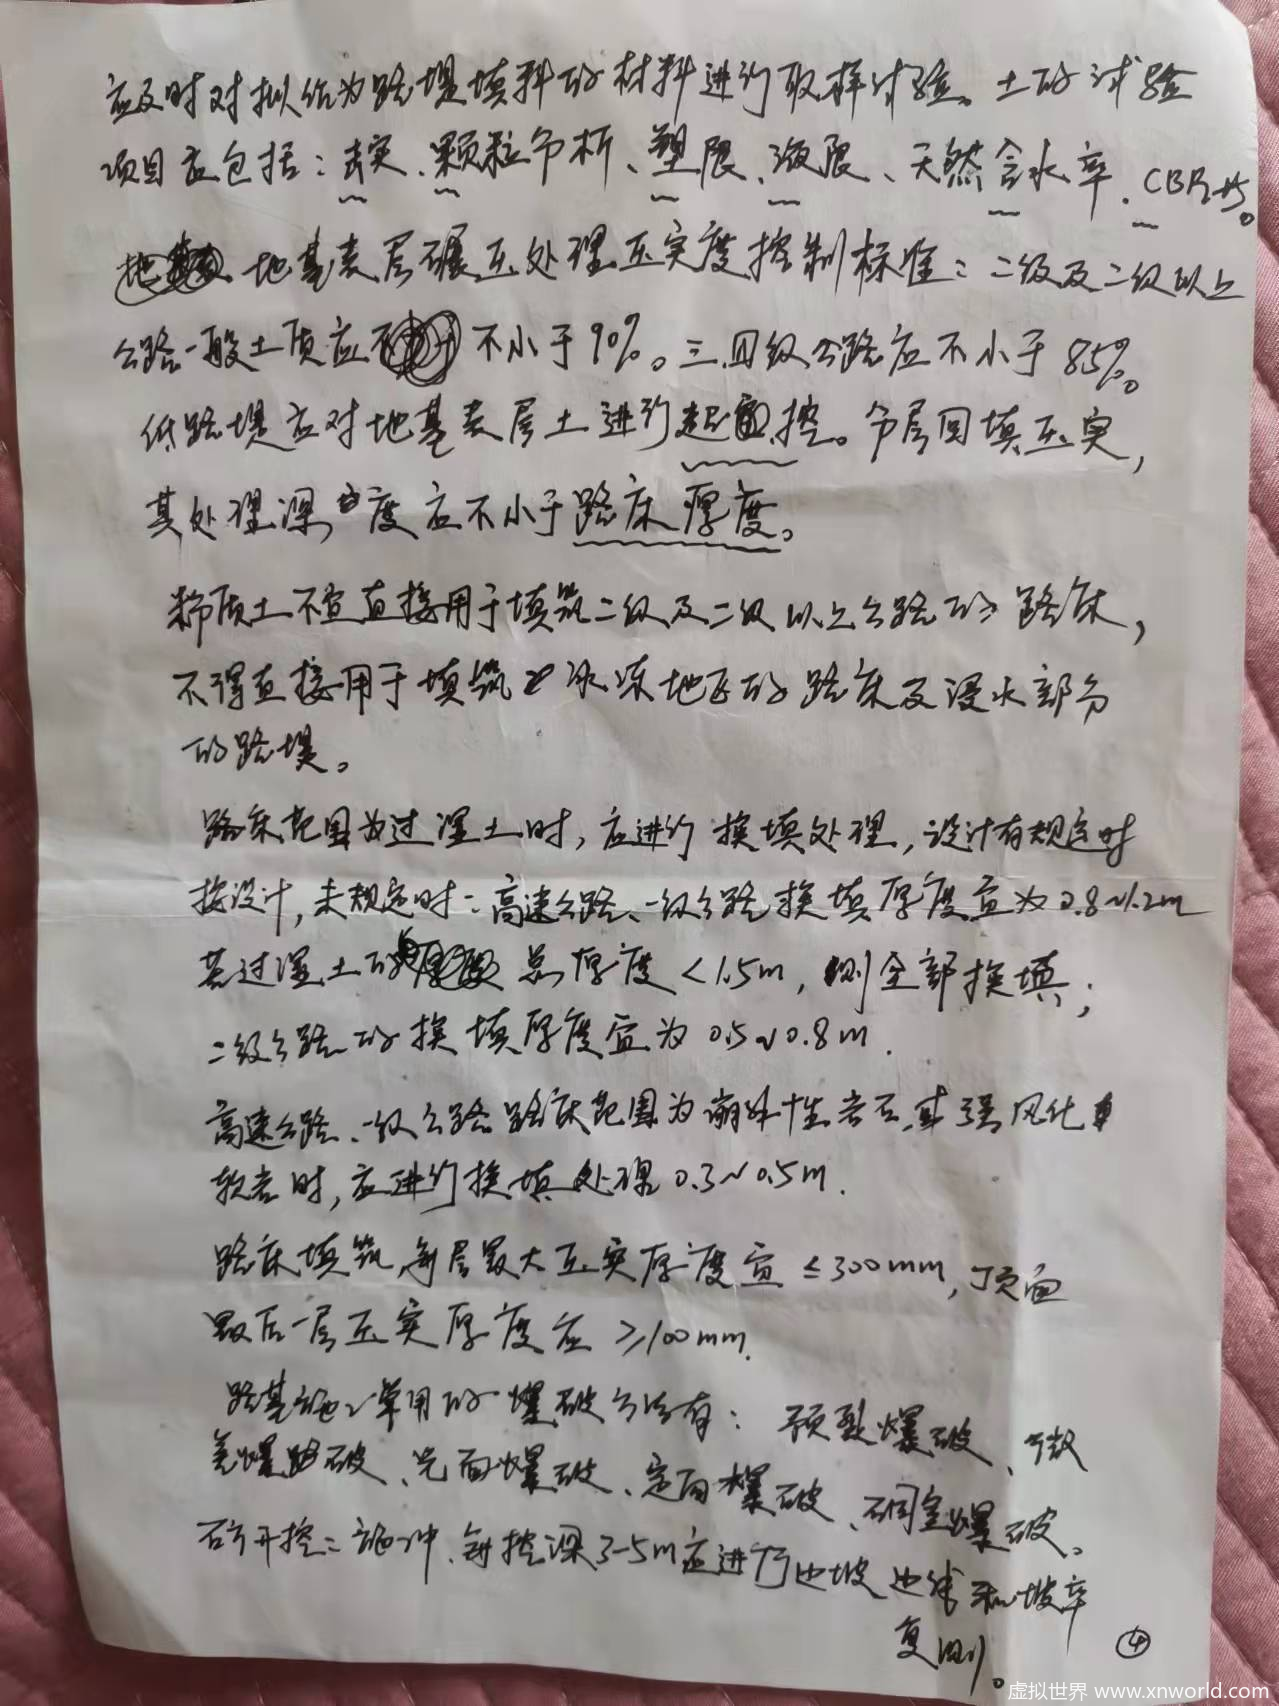 应及时对拟作为路堤填料的材料进行取样试验。土的试验
项目应包括：击实、颗粒分析、塑限、液限、天然含水率、CBR 等。
地基表层碾压处理压实度控制标准：二级及二级以上
公路一般土质应不小于90%。三.四级公路应不小于85%。
低路堤应对地基表层土进行超挖。分层回填压实，
其处理深度应不小于路床厚度。
粉质土不宜直接用于填筑二级及二级以上公路的路床，
不得直接用于填筑冰冻地区的路床及浸水部分
的路堤。
路床范围为过湿土时，应进行换填处理，设计有规定时
按设计，未规定时：高速公路、一级公路换填厚度宜为0.8~1.2m
若过湿土的总厚度<1.5m，则全部换填；
二级公路的换填厚度宜为0.5~0.8m.
高速公路、一级公路路床范围为崩解性岩石或强风化
软岩时，应进行换填处理0.3~0.5m.
路床填筑，每层最大压实厚度宜≤300mm，顶面
最后一层压实厚度应≥100mm.
路基施工常用的爆破方法有：预裂爆破、微
差爆破、光面爆破、定向爆破、硐室爆破。
石方开挖：施工中、每挖深3-5m应进行边坡边线和坡率
复测。
④
虚拟世界 www.xnworld.com